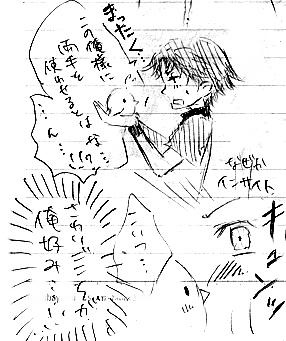 まったく…
この俺様に
両手を
使わせるとはな…!!?
…ん…!?
なぜか
インサイト
キュンッ
こいつ…
さわり心地が
俺好み…